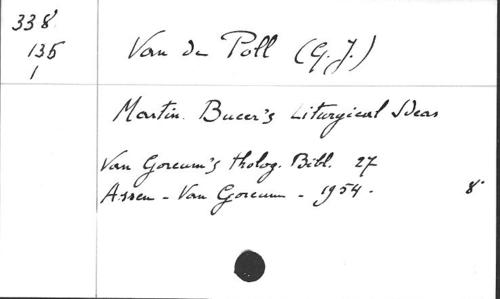 338
135
1
Van de Poll (G. J.)
Martin Bucer's Liturgical Ideas
Van Gorcum's theolog. Bibl. 27
Assen - Van Gorcum - 1954. 8°